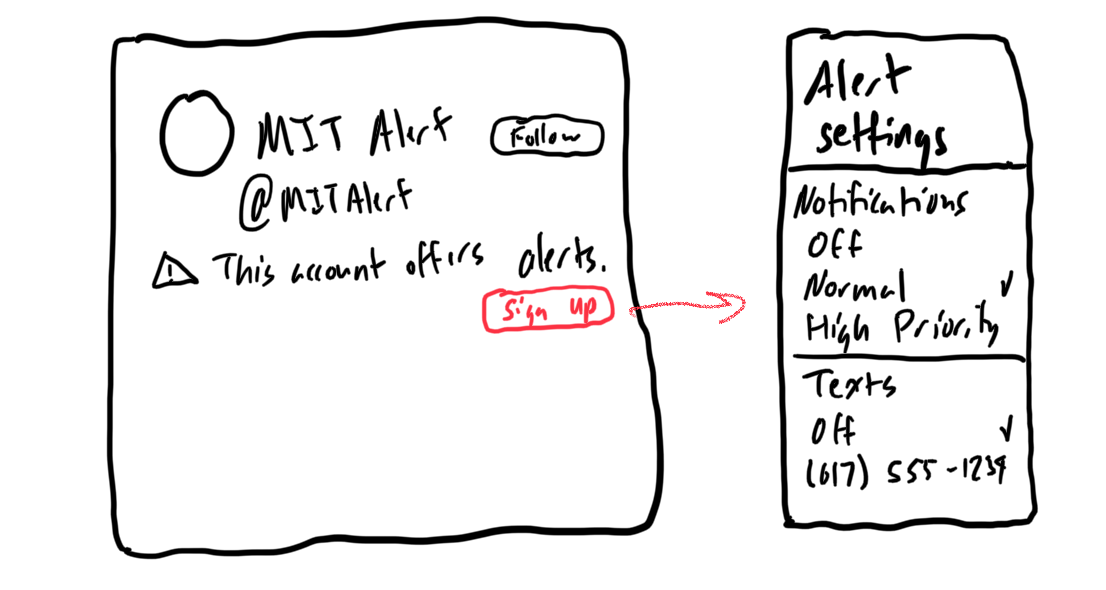 MIT Alert
Follow
@MITAlert
This account offers alerts.
Sign up
Alert
settings
Notifications
Off
Normal ✓
High Priority
Texts
Off ✓
(617) 555-1234